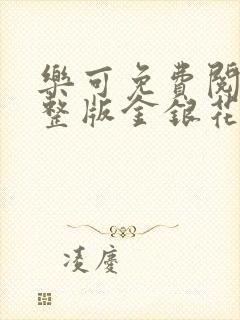 樂可免費閱
整版金銀花
凌慶